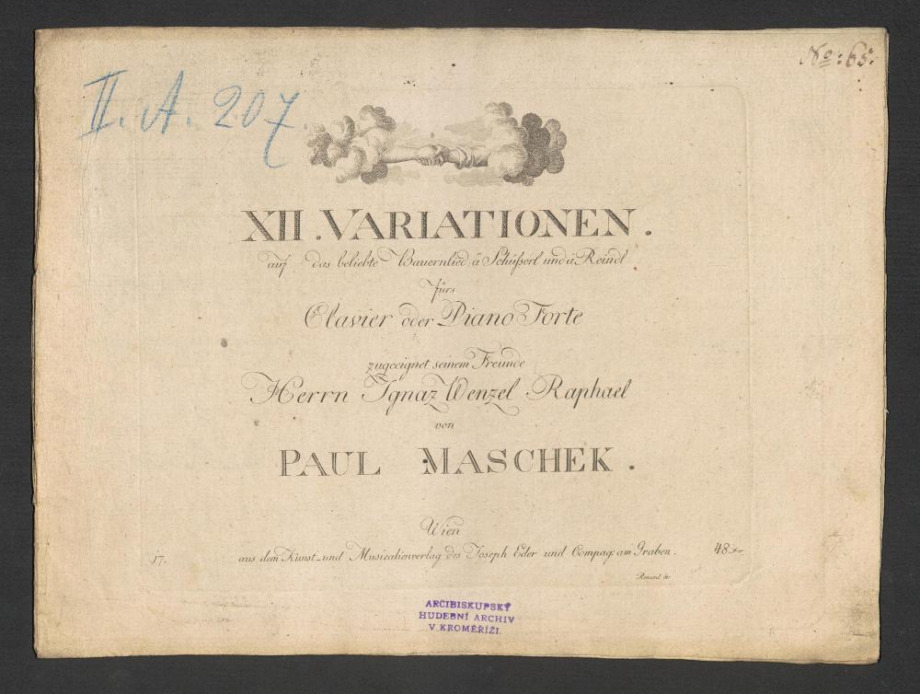 No: 65.
II. A. 207.
XII. VARIATIONEN.
auf das beliebte Bauernlied, à Schüßerl und à Reindl
fürs
Clavier oder Piano Forte
zugeeignet seinem Freunde
Herrn Ignaz Wenzel Raphael
von
PAUL MASCHEK.
Wien
17. aus dem Kunst-und Musicalienverlag des Joseph Eder und Compag: am Graben. 48 Xr
ARCIBISKUPSKÝ
HUDEBNÍ ARCHIV
V KROMĚŘÍŽI.